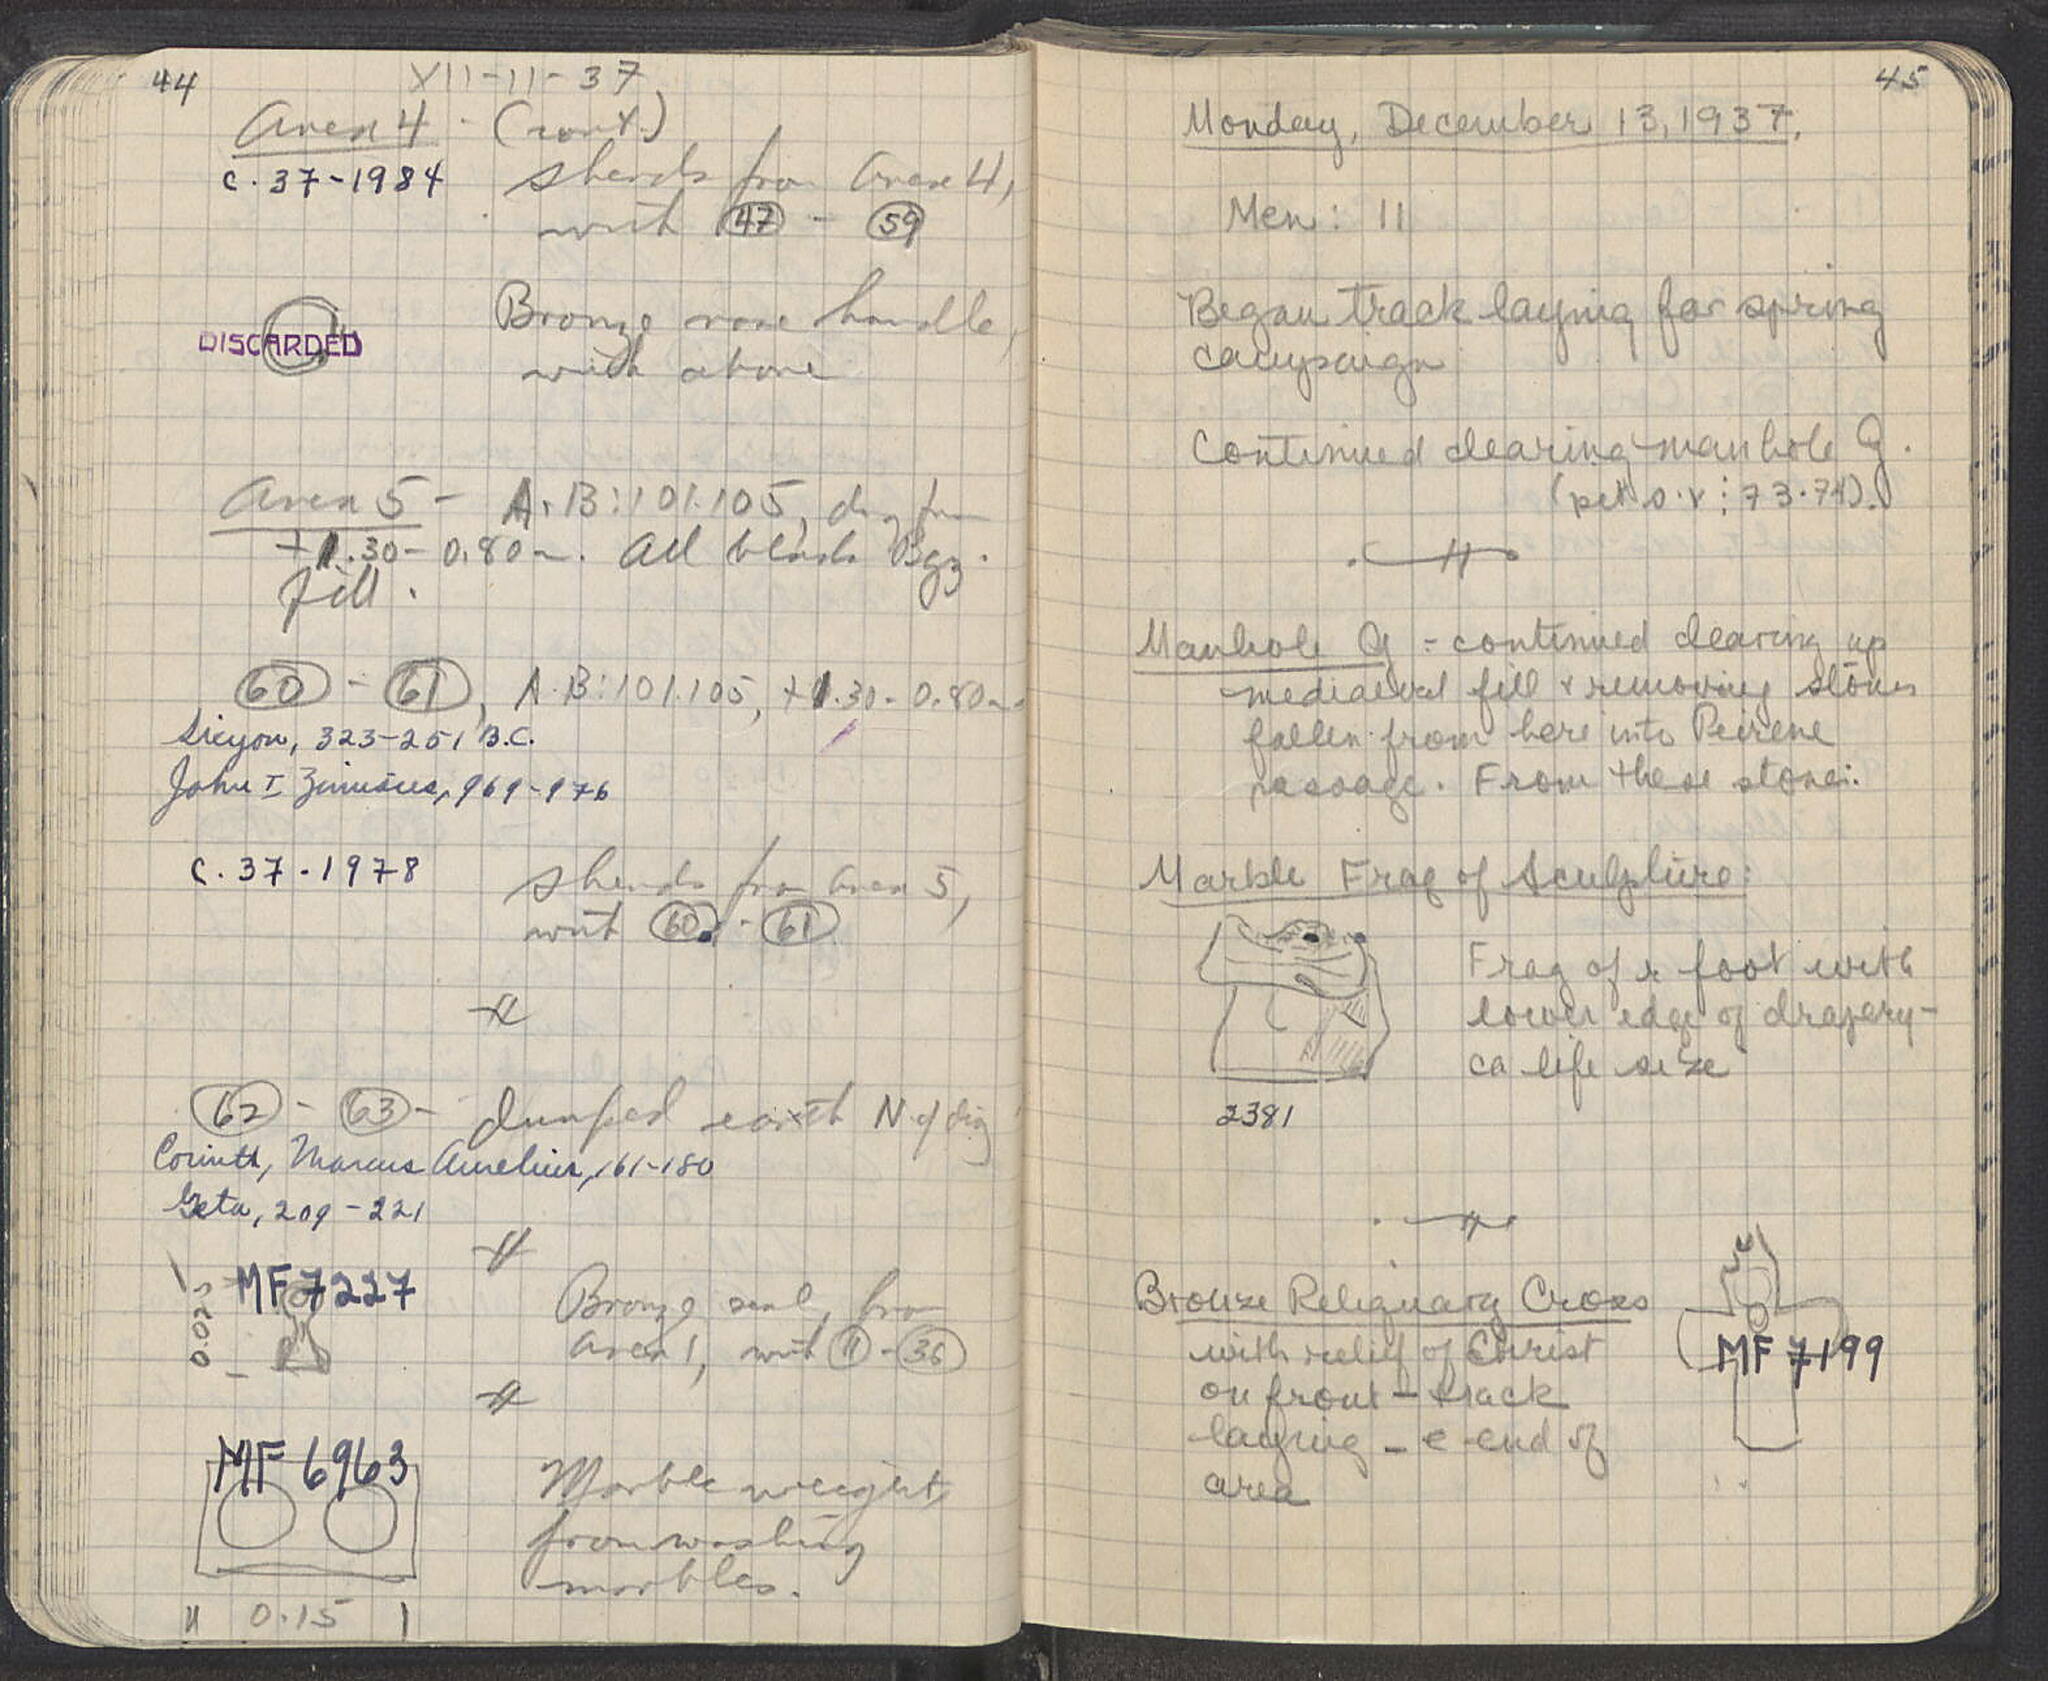 44
XII-11-37
Area 4 - (cont.)
C.37-1984
sherds from Area 4,
with 47 - 59
DISCARDED
Bronze vase handle,
with above
Area 5 - A-B:101.105, dug from
+1.30-0.80m. All black Byz.
fill.
60 - 61, A-B:101.105, +1.30-0.80m.
Sicyon, 323-251 B.C.
John I Zimisces, 969-976
C.37-1978
sherds from Area 5,
with 60 - 61
62 - 63 - dumped earth N. of dig
Corinth, Marcus Aurelius, 161-180
Geta, 209-221
MF 7227
0.025
Bronze seal, from
Area 1, with 11 - 36
MF 6963
Marble weight,
from washing
marbles.
0.15
45
Monday, December 13, 1937.
Men: 11
Began track laying for spring
campaign
Continued clearing manhole G.
73.74).
Manhole G = continued clearing up
mediaeval fill & removing stones
fallen from here into Peirene
passage. From these stones:
Marble Frag of Sculpture:
Frag of r foot with
lower edge of drapery-
ca life size
2381
Bronze Reliquary Cross
with relief of Christ
on front - track
laying - e end of
area
MF 7199